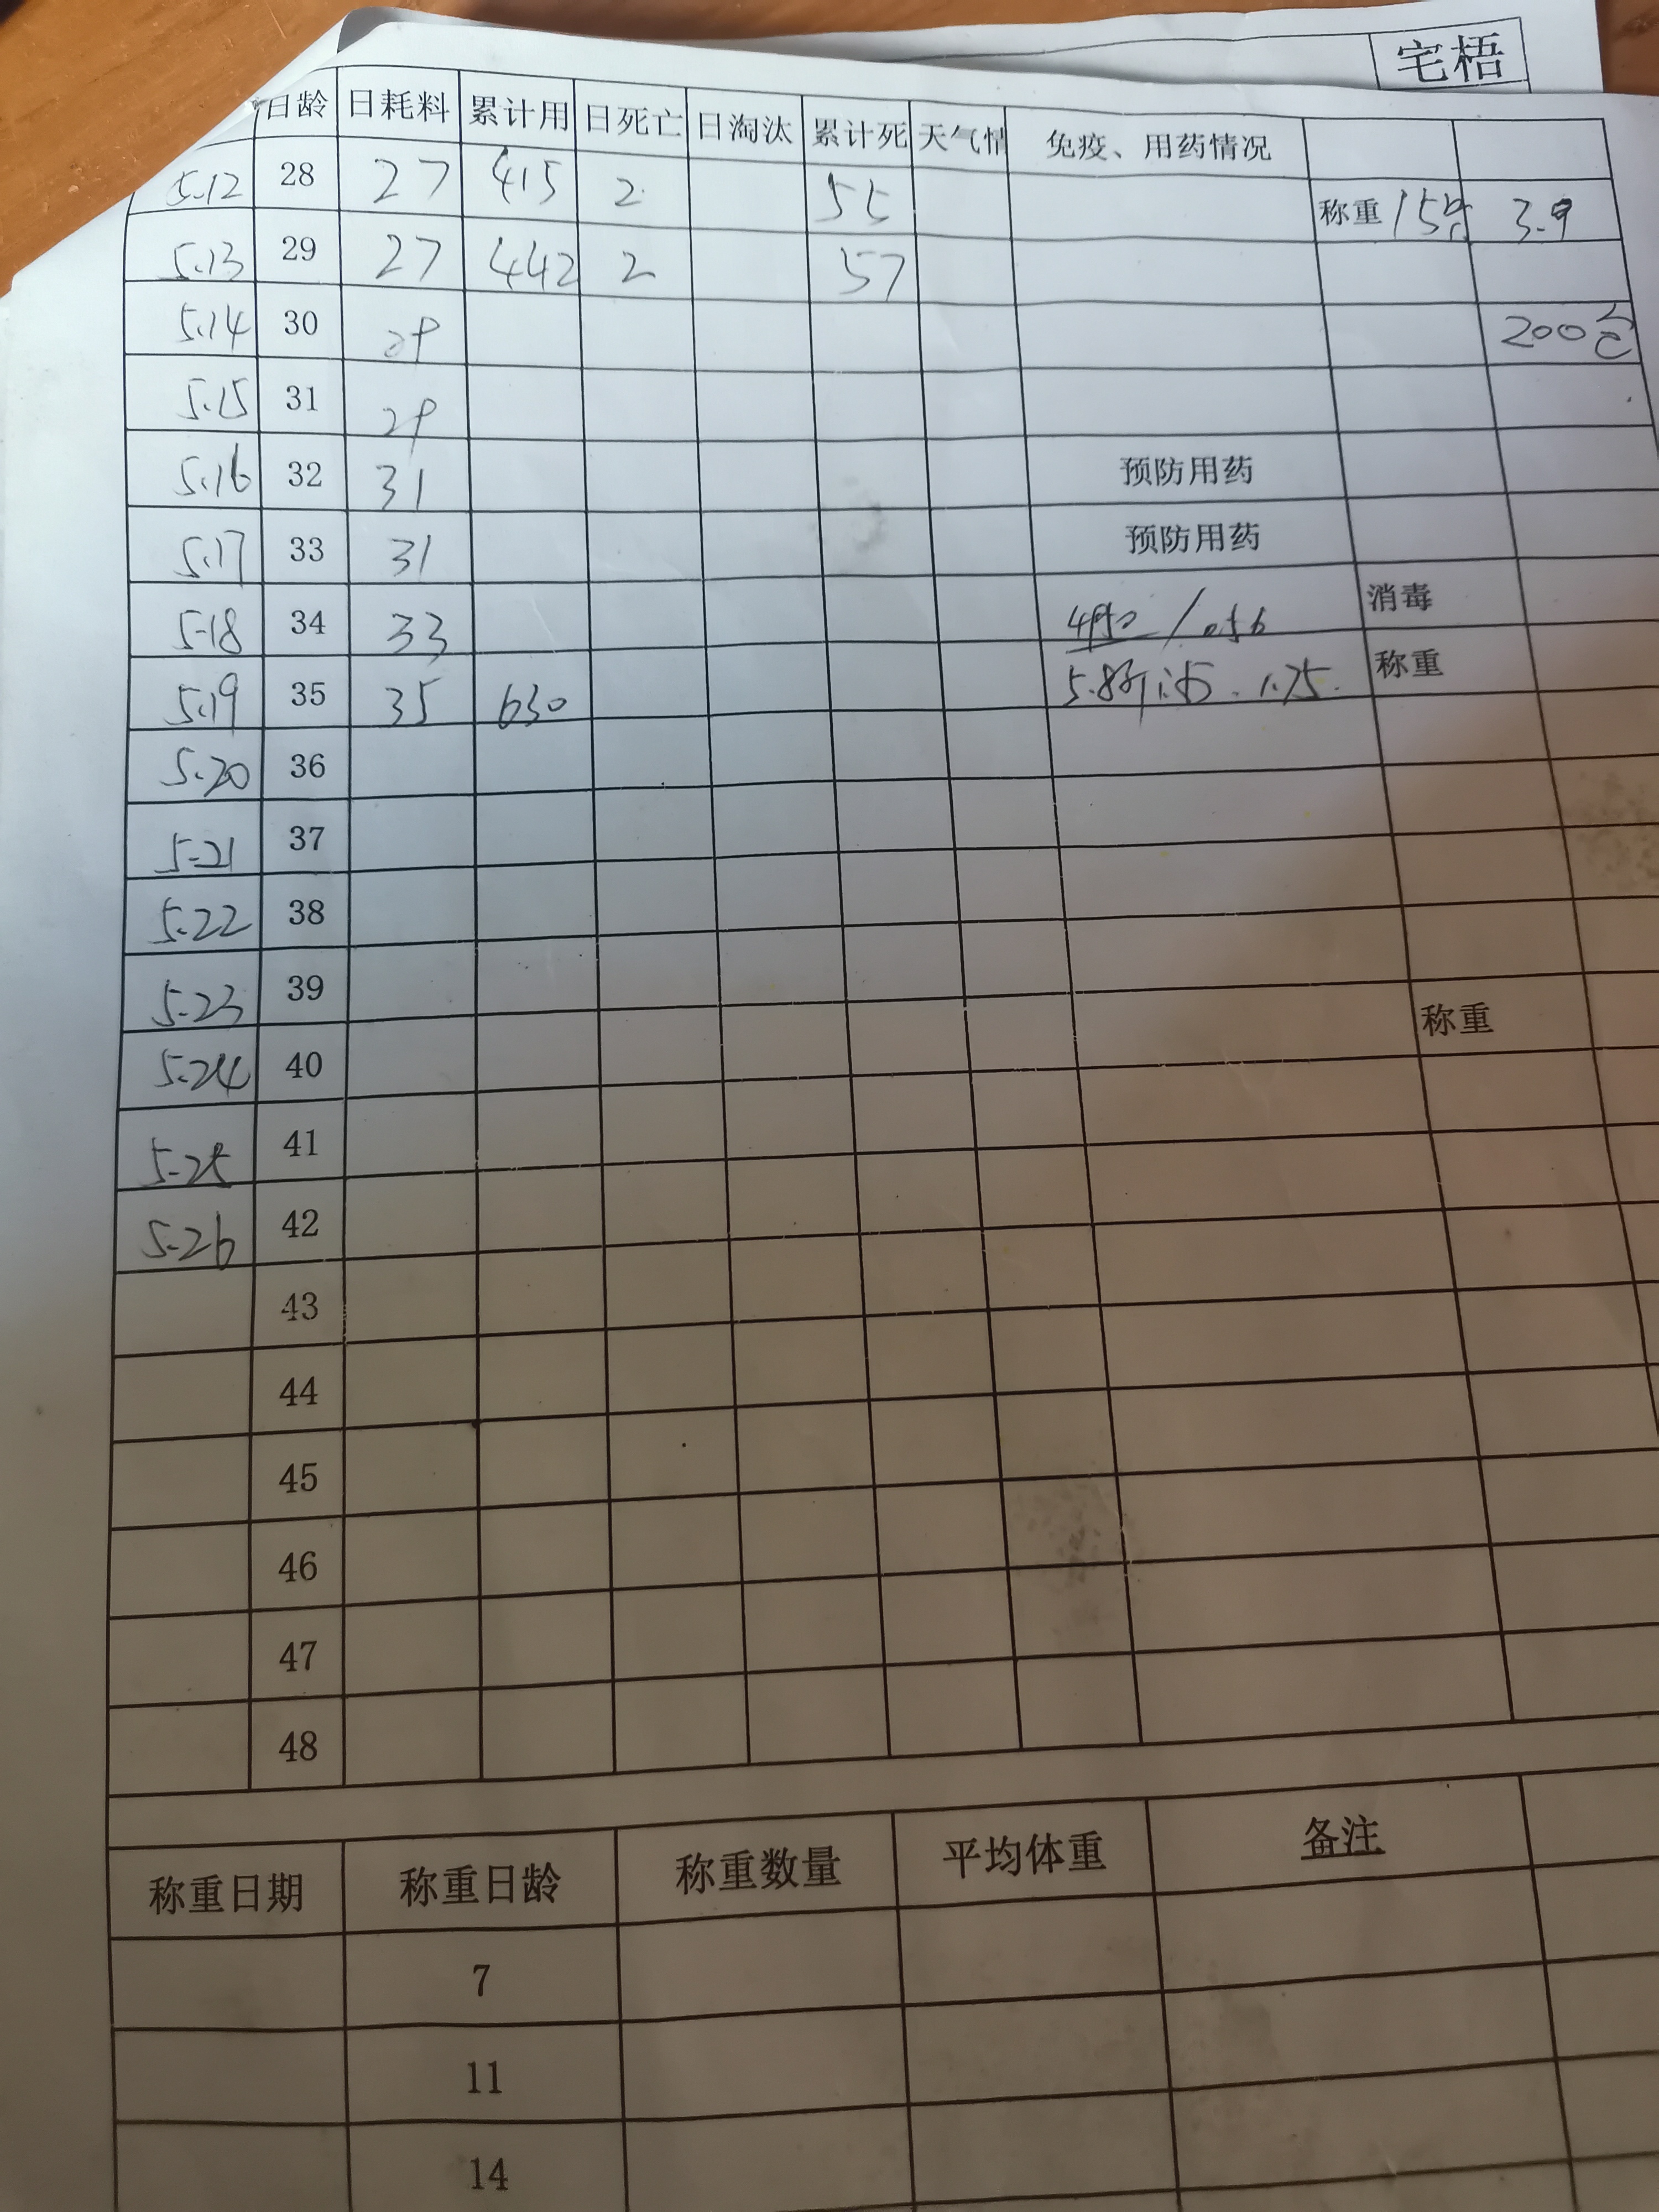 宅梧
日龄 日耗料 累计用 日死亡 日淘汰 累计死 天气情 免疫、用药情况
5.12 28 27 415 2 55 称重 15号 3.9
5.13 29 27 442 2 57
5.14 30 29 200
5.15 31 29
5.16 32 31 预防用药
5.17 33 31 预防用药
5.18 34 33 消毒
5.19 35 35 630 5.8斤 1.75 称重
5.20 36
5.21 37
5.22 38
5.23 39
5.24 40 称重
5.25 41
5.26 42
43
44
45
46
47
48
称重日期 称重日龄 称重数量 平均体重 备注
7
11
14